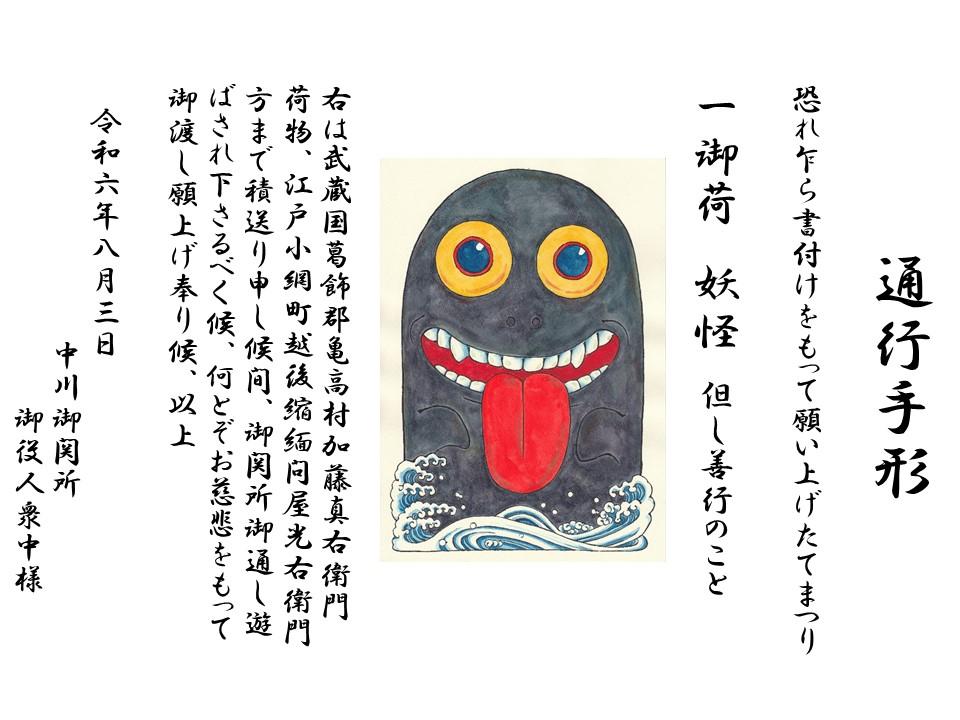 通行手形
恐れ乍ら書付けをもって願い上げたてまつり
一 御荷 妖怪 但し善行のこと
右は武蔵国葛飾郡亀高村加藤真右衛門
荷物、江戸小網町越後縮緬问屋光右衛門
方まで積送り申し候间、御関所御通し遊
ばされ下さるべく候、何とぞお慈悲をもって
御渡し願上げ奉り候、以上
令和六年八月三日
中川御関所
御役人衆中様